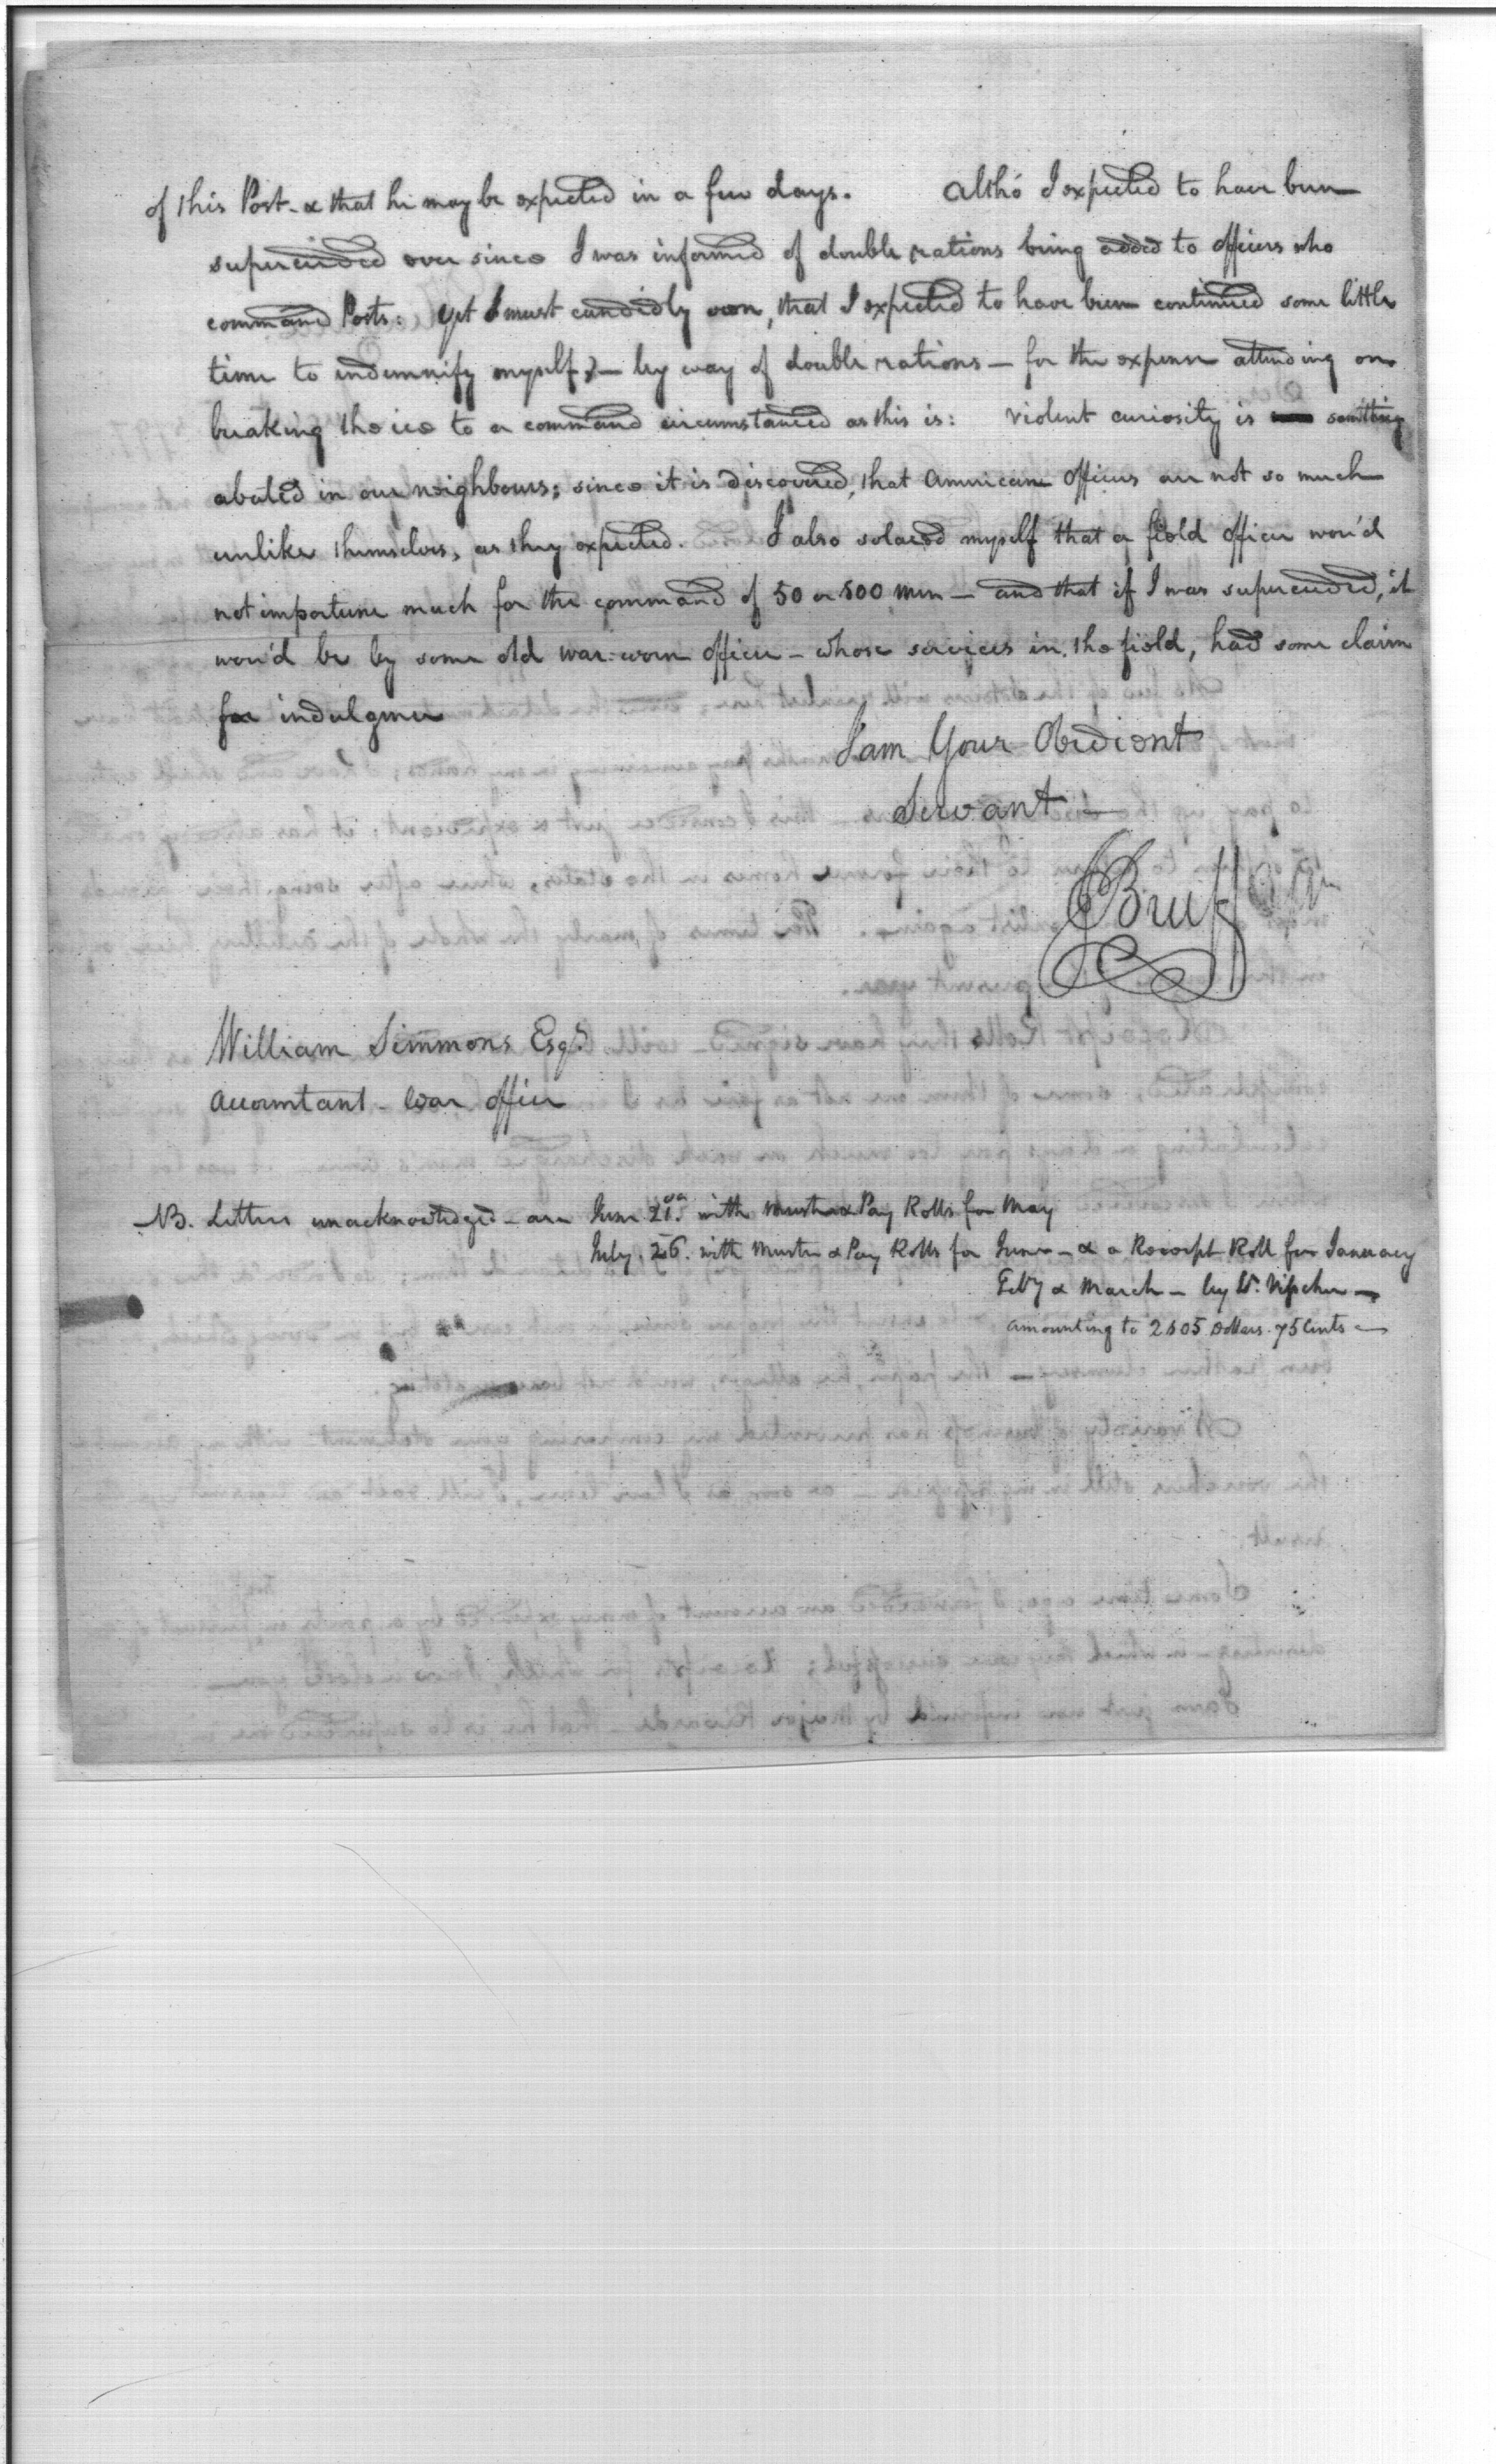 of this Post - & that he may be expected in a few days. Altho' I expected to have been
superceeded ever since I was informed of double rations being added to officers who
command Posts: yet I must candidly own, that I expected to have been continued some little
time to indemnify myself, - by way of double rations - for the expense attending on
breaking the ice to a command circumstanced as this is: violent curiosity is something
abated in our neighbours; since it is discovered, that American Officers are not so much
unlike themselves, as they expected. I also solaced myself that a field officer wou'd
not importune much for the command of 50 or 500 men - and that if I was superceeded, it
wou'd be by some old war-worn officer - whose services in the field, had some claim
for indulgence
I am Your Obedient
Servant -
Bruff
William Simmons Esqr.
Accountant - War office
NB. Letters unacknowledged - are June 21. with Muster & Pay Rolls for May
July. 26. with Muster & Pay Rolls for June - & a Receipt Roll for January
Feby & March - by Lt. Visscher -
amounting to 2605 Dollars. 75 Cents -